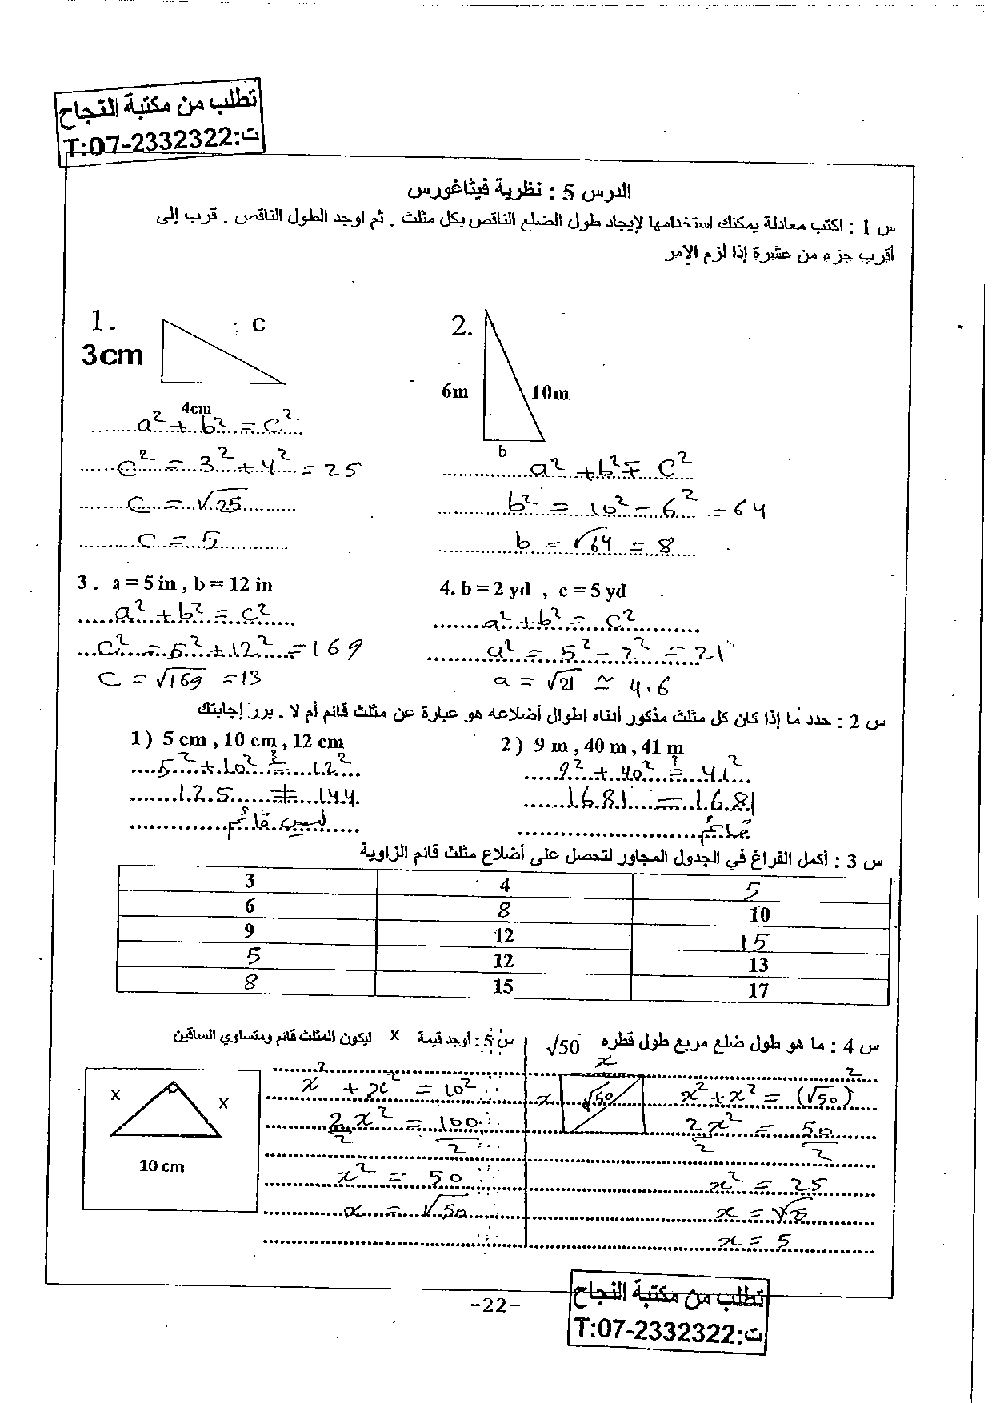 تطلب من مكتبة النجاح
ت:T:07-2332322
الدرس 5 : نظرية فيثاغورس
س 1 : اكتب معادلة يمكنك استخدامها لإيجاد طول الضلع الناقص بكل مثلث . ثم اوجد الطول الناقص . قرب إلى
أقرب جزء من عشرة إذا لزم الامر
1.
3cm
C
4cm
a² + b² = c²
c² = 3² + 4² = 25
c = √25
c = 5
2.
6m
10m
b
a² + b² = c²
b² = 10² - 6² = 64
b = √64 = 8
3 . a = 5 in , b = 12 in
a² + b² = c²
c² = 5² + 12² = 169
c = √169 = 13
4. b = 2 yd , c = 5 yd
a² + b² = c²
a² = 5² - 2² = 21
a = √21 ≃ 4.6
س 2 : حدد ما إذا كان كل مثلث مذكور أدناه اطوال أضلاعه هو عبارة عن مثلث قائم أم لا . برر إجابتك
1 ) 5 cm , 10 cm , 12 cm
5² + 10² ≟ 12²
125 ≠ 144
ليس قائم
2 ) 9 m , 40 m , 41 m
9² + 40² ≟ 41²
1681 = 1681
قائم
س 3 : أكمل الفراغ في الجدول المجاور لتحصل على أضلاع مثلث قائم الزاوية
3 4 5
6 8 10
9 12 15
5 12 13
8 15 17
س 4 : ما هو طول ضلع مربع طول قطره √50
x
x
√50
x² + x² = (√50)²
2x² = 50
2 2
x² = 25
x = √25
x = 5
س 5 : أوجد قيمة x ليكون المثلث قائم ومتساوي الساقين
x
x
10 cm
x² + x² = 10²
2x² = 100
2 2
x² = 50
x = √50
-22-
تطلب من مكتبة النجاح
ت:T:07-2332322